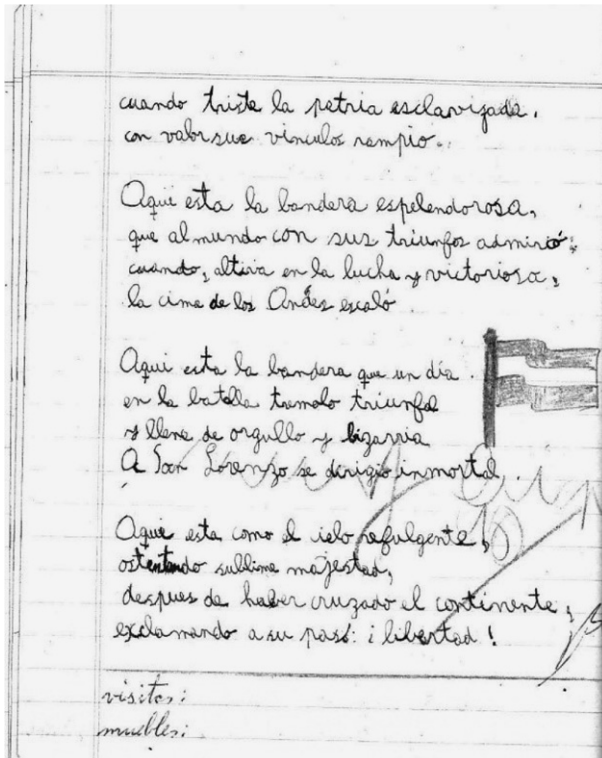 cuando triste la patria esclavizada.
con valor sus vinculos rompio.
Aqui esta la bandera espelendorosa,
que al mundo con sus triunfos admiró;
cuando, altiva en la lucha y victoriosa,
la cima de los Andes escaló
Aqui esta la bandera que un día
en la batalla tremolo triunfal
y llena de orgullo y bizarria
A San Lorenzo se dirigio inmortal.
Aqui esta como el ielo refulgente,
ostentando sublime majestad,
despues de haber cruzado el continente,
exclamando a su paso: ¡ libertad !
visitas:
muebles: